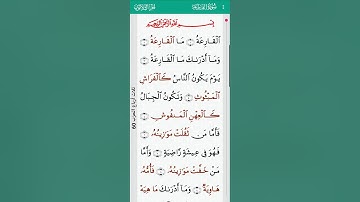 بِسْمِ ٱللَّهِ ٱلرَّحْمَٰنِ ٱلرَّحِيمِ
ٱلْقَارِعَةُ ۝ مَا ٱلْقَارِعَةُ ۝
وَمَآ أَدْرَىٰكَ مَا ٱلْقَارِعَةُ ۝
يَوْمَ يَكُونُ ٱلنَّاسُ كَٱلْفَرَاشِ
ٱلْمَبْثُوثِ ۝ وَتَكُونُ ٱلْجِبَالُ
كَٱلْعِهْنِ ٱلْمَنفُوشِ ۝
فَأَمَّا مَن ثَقُلَتْ مَوَٰزِينُهُۥ ۝
فَهُوَ فِى عِيشَةٍ رَّاضِيَةٍ ۝ وَأَمَّا
مَنْ خَفَّتْ مَوَٰزِينُهُۥ ۝ فَأُمُّهُۥ
هَاوِيَةٌ ۝ وَمَآ أَدْرَىٰكَ مَا هِيَهْ